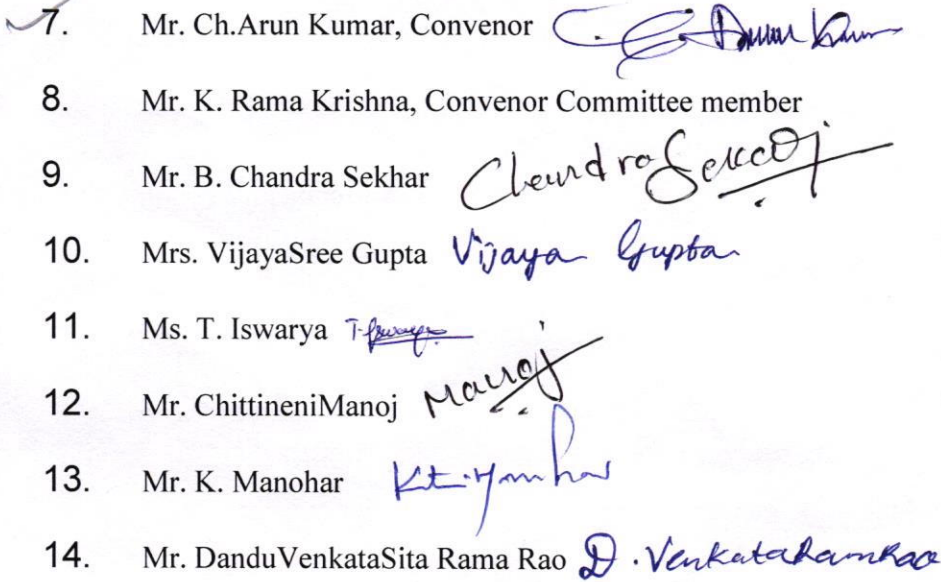 7. Mr. Ch.Arun Kumar, Convenor C. Arun Kumar
8. Mr. K. Rama Krishna, Convenor Committee member
9. Mr. B. Chandra Sekhar Chandra
10. Mrs. VijayaSree Gupta Vijaya Gupta
11. Ms. T. Iswarya T. Iswarya
12. Mr. ChittineniManoj Manoj
13. Mr. K. Manohar
14. Mr. DanduVenkataSita Rama Rao D. VenkataRamRao